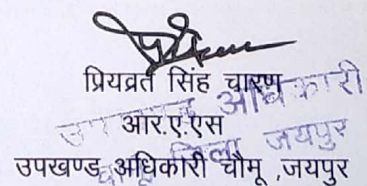 प्रियव्रत सिंह चारण
आर.ए.एस
उपखण्ड अधिकारी चौमू ,जयपुर
उपखण्ड अधिकारी
जिला जयपुर